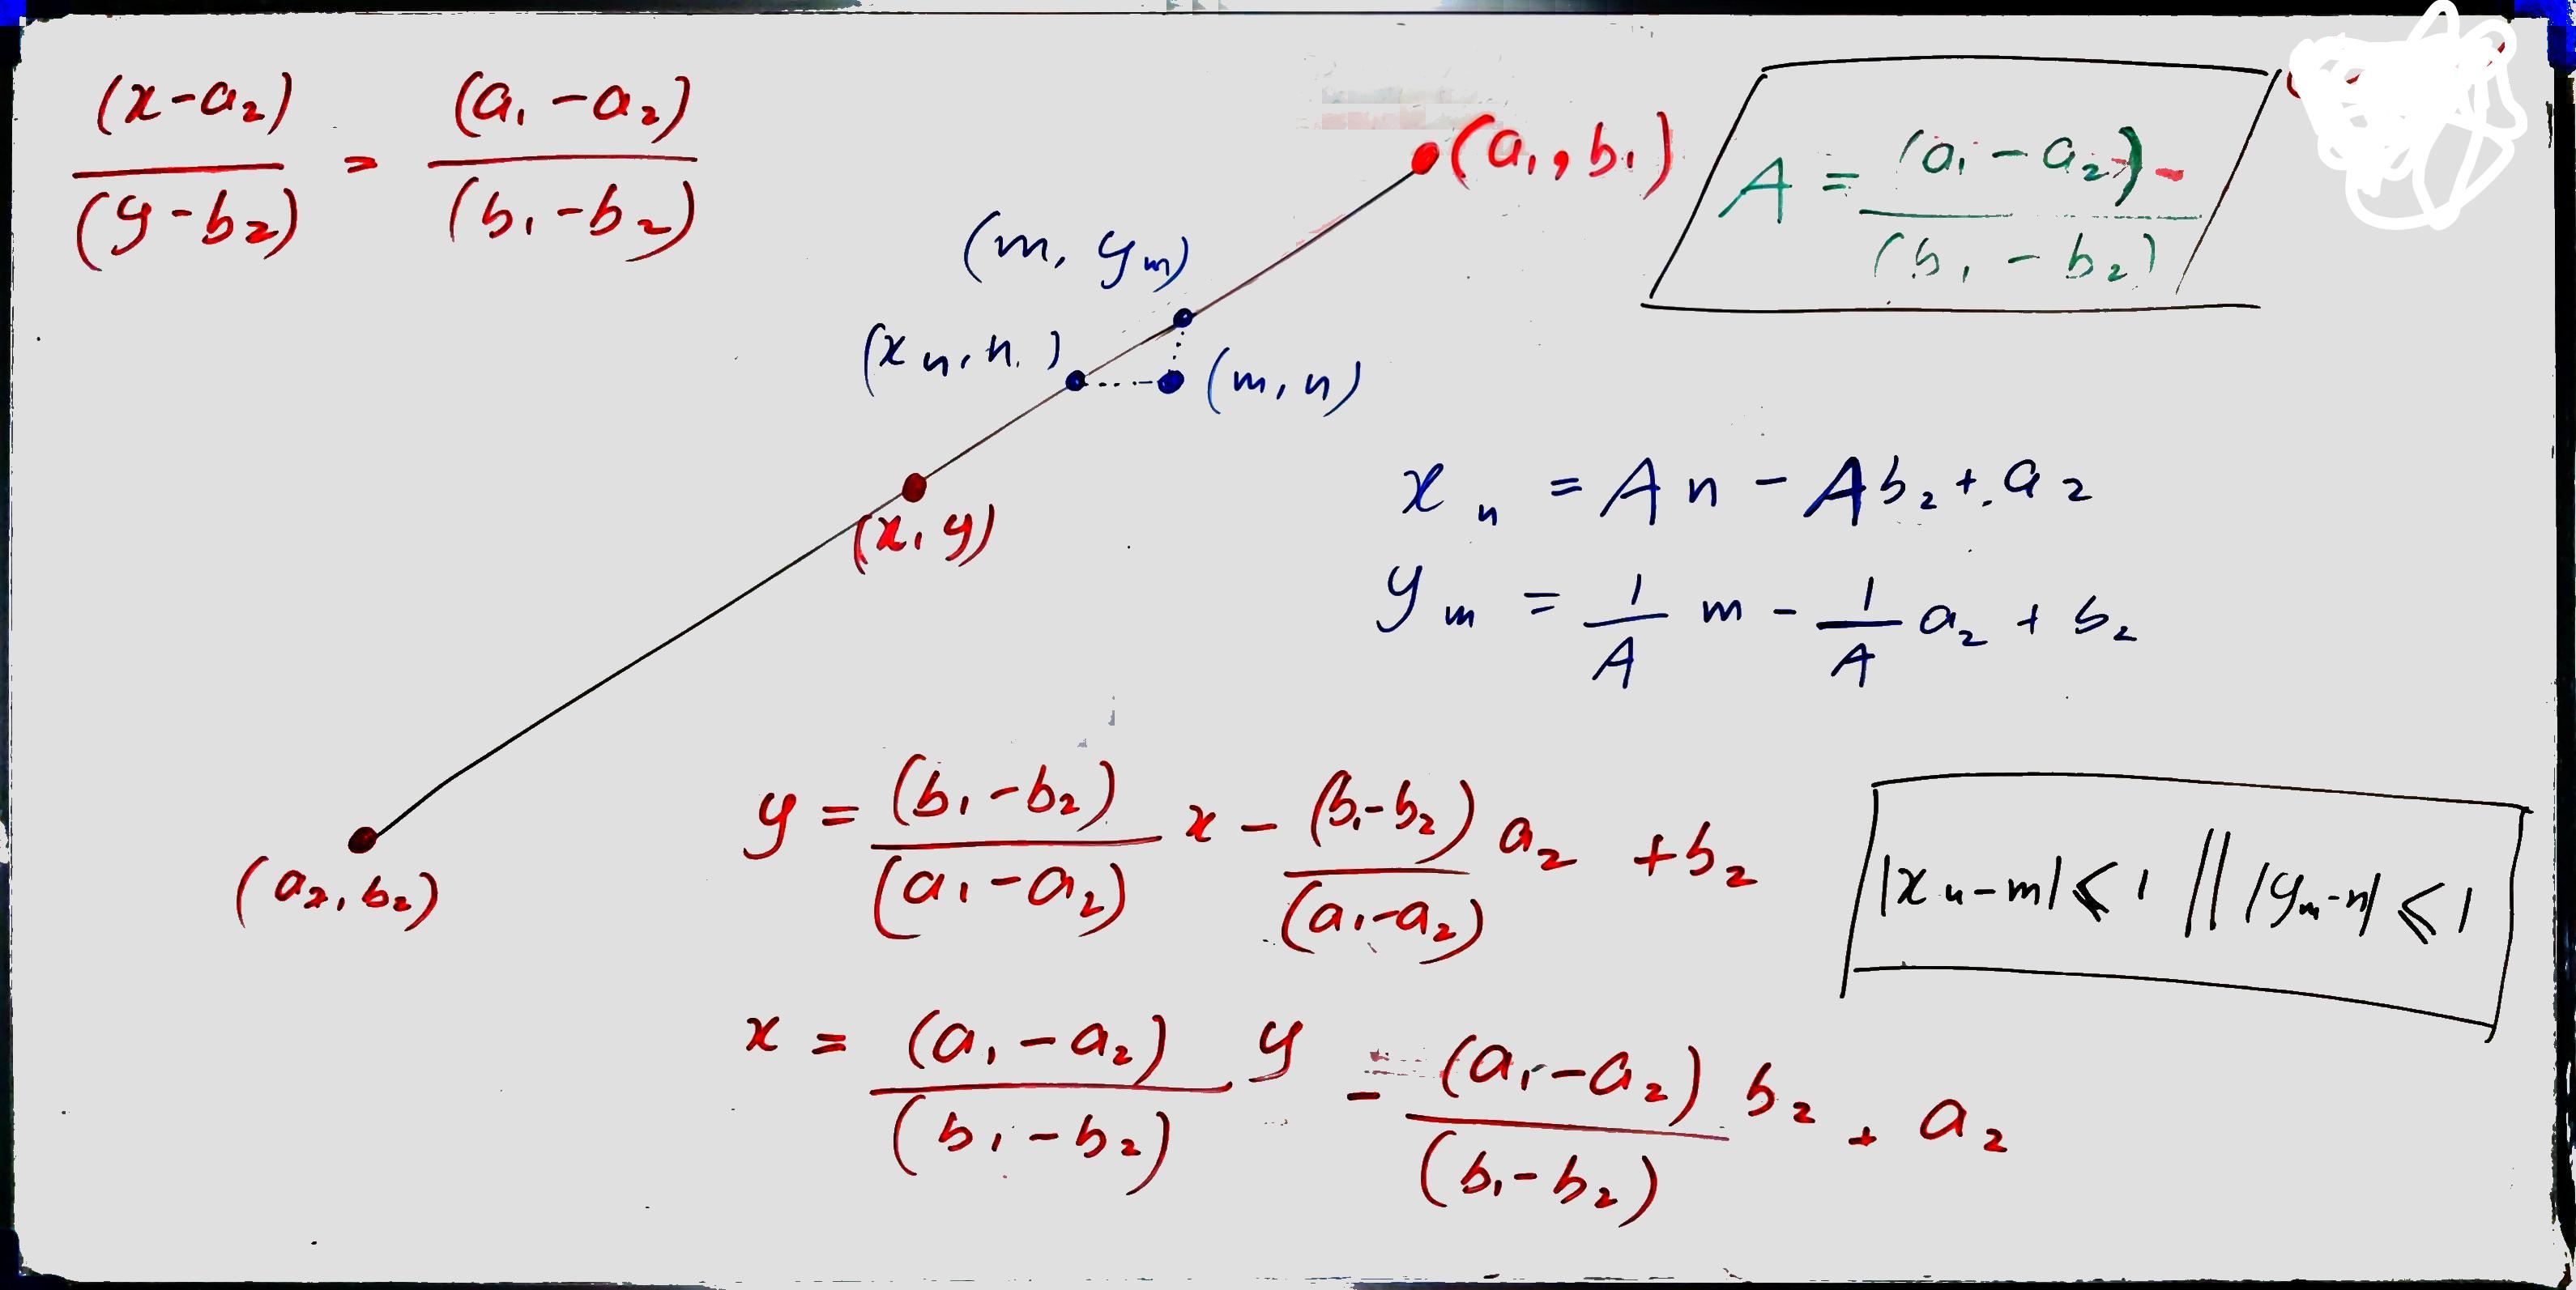 (x-a₂)/(y-b₂) = (a₁-a₂)/(b₁-b₂)
(a₁, b₁)
A = (a₁-a₂)/(b₁-b₂)
(m, yₘ)
(xₙ, n)
(m, n)
(x, y)
xₙ = An - Ab₂ + a₂
yₘ = 1/A m - 1/A a₂ + b₂
(a₂, b₂)
y = (b₁-b₂)/(a₁-a₂) x - (b₁-b₂)/(a₁-a₂) a₂ + b₂
|xₙ-m| ⩽ 1 || |yₘ-n| ⩽ 1
x = (a₁-a₂)/(b₁-b₂) y - (a₁-a₂)/(b₁-b₂) b₂ + a₂